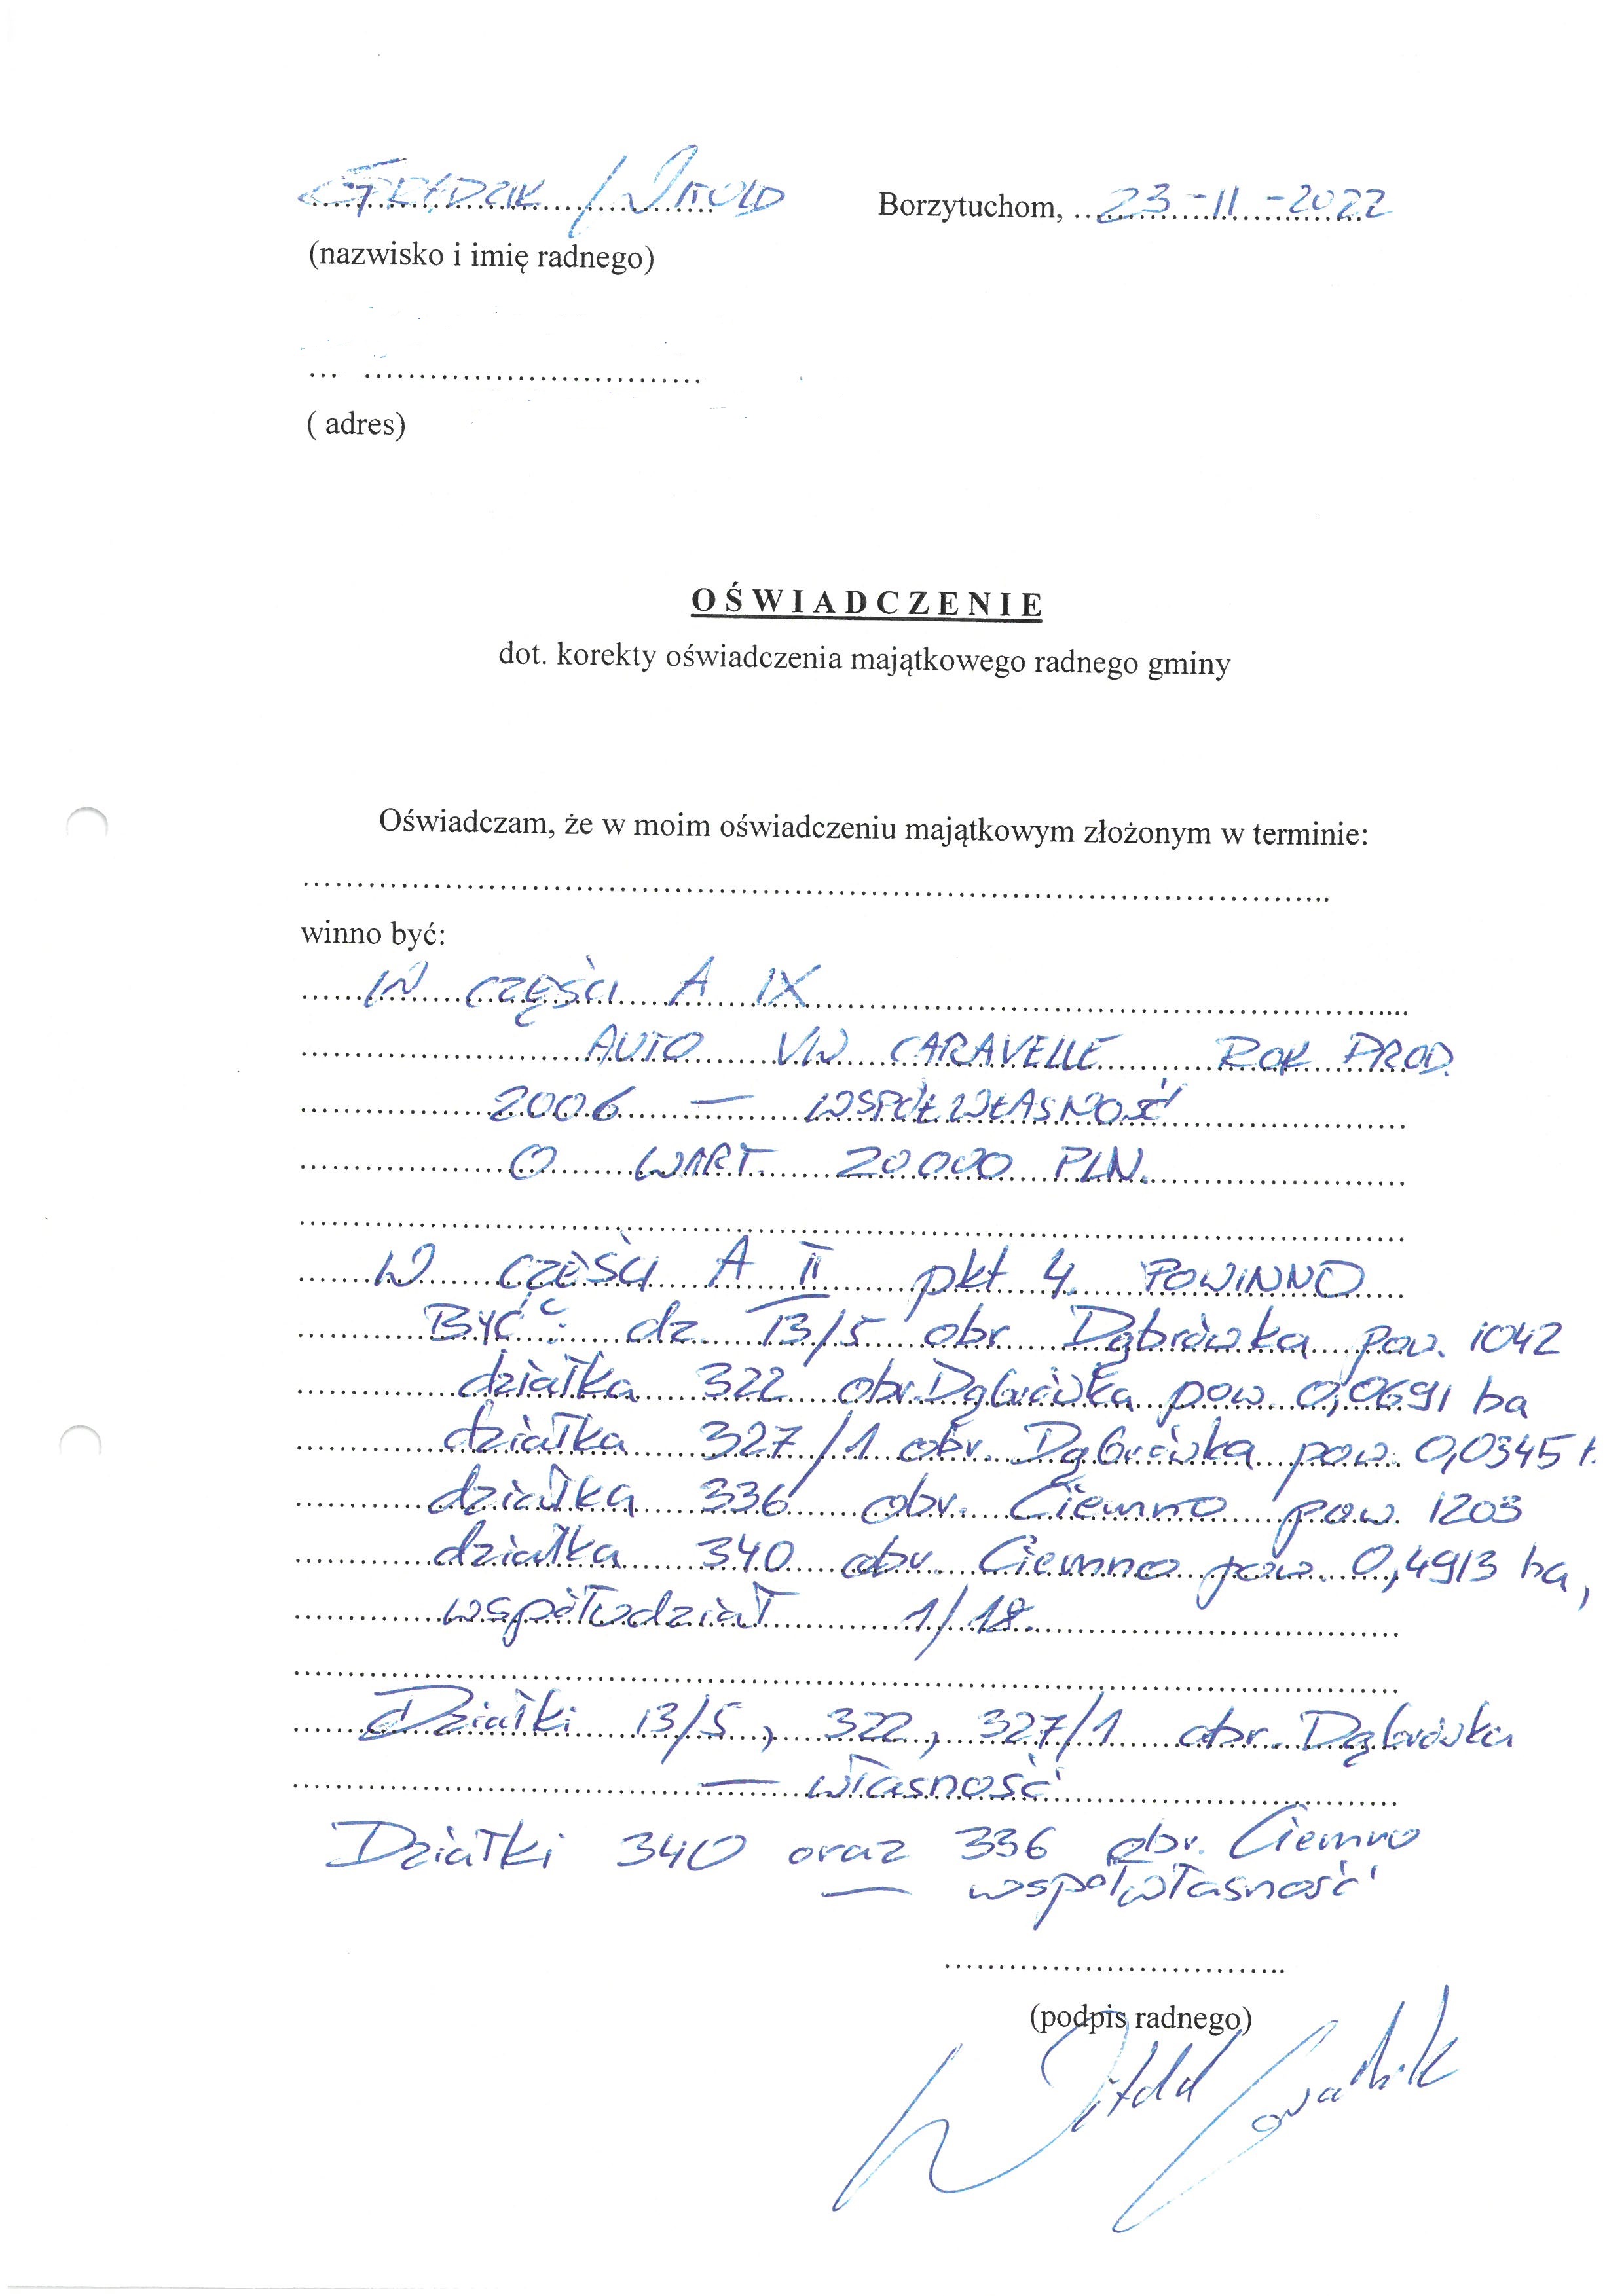 WITOLD Borzytuchom, 23-11-2022
(nazwisko i imię radnego)
... ................................
( adres)
OŚWIADCZENIE
dot. korekty oświadczenia majątkowego radnego gminy
Oświadczam, że w moim oświadczeniu majątkowym złożonym w terminie:
winno być:
W CZĘŚCI A IX
AUTO VW CARAVELLE ROK PROD.
2006 — WSPÓŁWŁASNOŚĆ
O WART. 20.000 PLN.
W CZĘŚCI A II pkt 4. POWINNO
BYĆ: dz. 13/5 obr. Dąbrówka pow. 1042
działka 322 obr. Dąbrówka pow. 0,0691 ha
działka 327/1 obr. Dąbrówka pow. 0,0345
działka 336 obr. Ciemno pow. 1203
działka 340 obr. Ciemno pow. 0,4913 ha,
współudział 1/18.
Działki 13/5, 322, 327/1 obr. Dąbrówka
— własność
Działki 340 oraz 336 obr. Ciemno
— współwłasność
(podpis radnego)
Witold